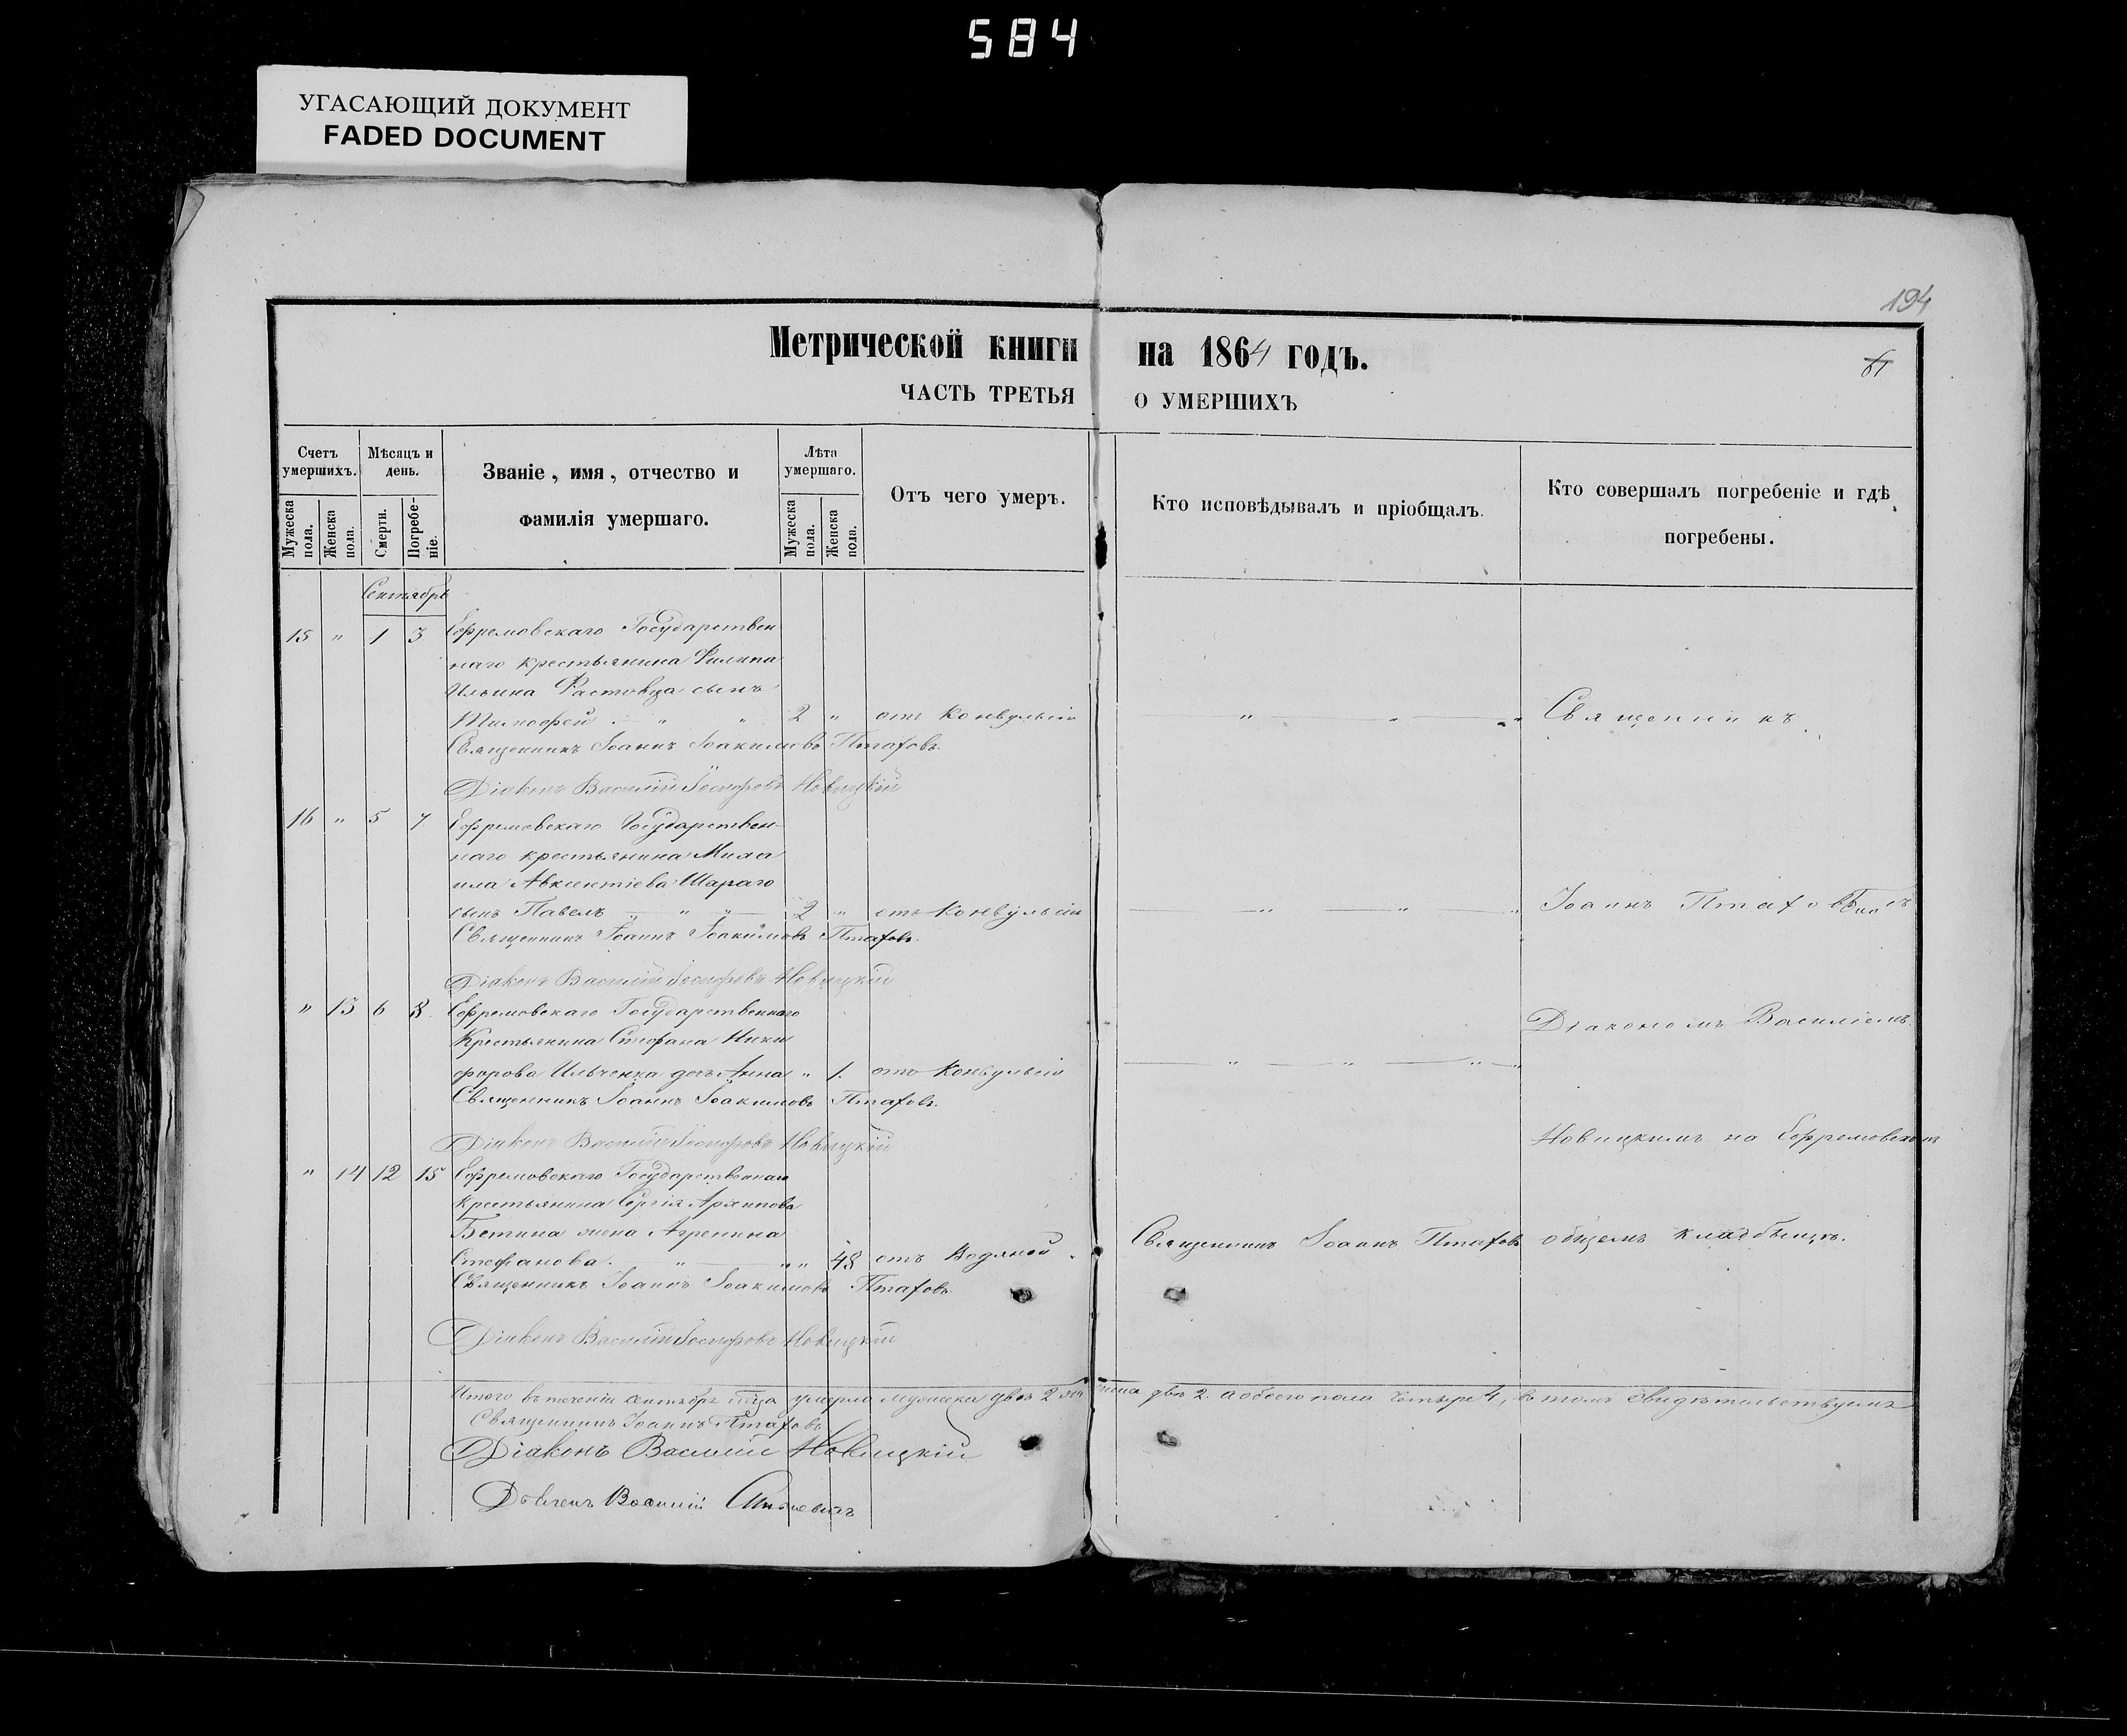 584
УГАСАЮЩИЙ ДОКУМЕНТ
FADED DOCUMENT
194
Метрической книги на 1864 годъ.
61
ЧАСТЬ ТРЕТЬЯ О УМЕРШИХЪ
Счетъ умершихъ.
Мѣсяцъ и день.
Званіе, имя, отчество и фамилія умершаго.
Лѣта умершаго.
Отъ чего умеръ.
Кто исповѣдывалъ и пріобщалъ.
Кто совершалъ погребеніе и гдѣ погребены.
Мужеска пола.
Женска пола.
Смерти.
Погребе-ніе.
Мужеска пола.
Женска пола.
Сентябрь
15 " 1 3 Ефремовскаго Государствен
наго крестьянина Филипа
Ильина Растовца сынъ
Тимофей " " 2 " отъ Конвульсіи " " " Священникъ
Священникъ Іоаннъ Іоакимовъ Птаховъ.
Діаконъ Василій Іосифовъ Новицкій
16 " 5 7 Ефремовскаго Государствен-
наго крестьянина Миха
ила Авксентіева Шараго
сынъ Павелъ " " " 2 " отъ Конвульсіи " " " Іоаннъ Птаховъ съ
Священникъ Іоаннъ Іоакимовъ Птаховъ.
Діаконъ Василій Іосифовъ Новицкій
" 13 6 8 Ефремовскаго Государственнаго
Крестьянина Стефана Ники
форова Ильченка дочь Анна " 1. отъ Конвульсіи " " " "
Діакономъ Василіемъ
Священникъ Іоаннъ Іоакимовъ Птаховъ.
Діаконъ Василій Іосифовъ Новицкій
Новицкимъ на Ефремовскомъ
" 14 12 15 Ефремовскаго Государственнаго
крестьянина Сергія Архипова
Бетина жена Агрепина
Стефанова. " " " 48 отъ Водяной. Священникъ Іоаннъ Птаховъ общемъ кладбищѣ.
Священникъ Іоаннъ Іоакимовъ Птаховъ.
Діаконъ Василій Іосифовъ Новицкій
Итого въ теченіи сентябрѣ мѣсяца умерло мужеска двѣ 2 женска двѣ 2. а обоего пола четыре 4, въ томъ свидѣтельствуемъ
Священникъ Іоаннъ Птаховъ
Діаконъ Василій Новицкій
Василій